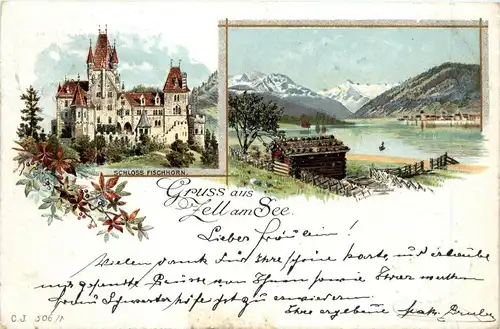 SCHLOSS FISCHHORN.
Gruss aus
Zell am See.
Lieber Fräulein!
Vielen Dank für Ihre schöne Karte, und erlaube
mir gesandte Grüsse von Ihnen sowie Ihrer werthen
Frau Schwester höflichst zu erwiedern.
Ihre ergebene
C.J. 506/1